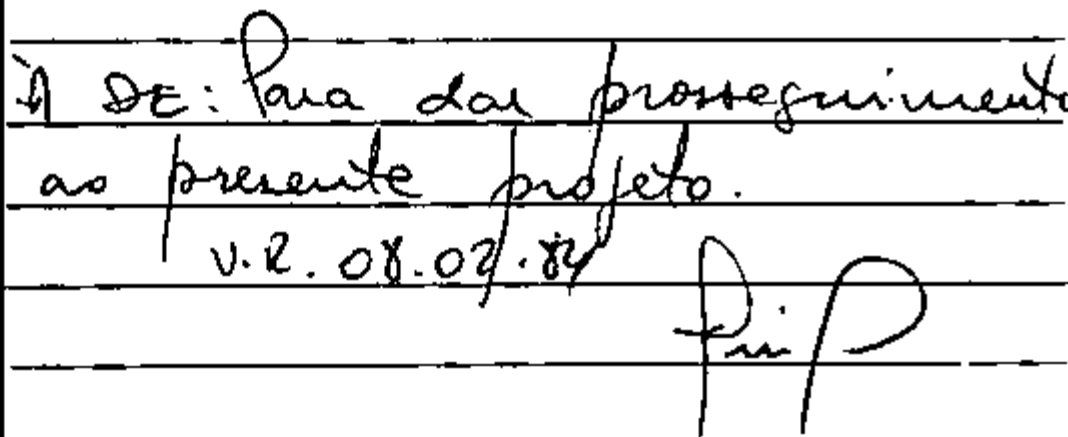 À DE: Para dar prosseguimento
ao presente projeto.
V.R. 08.02.84